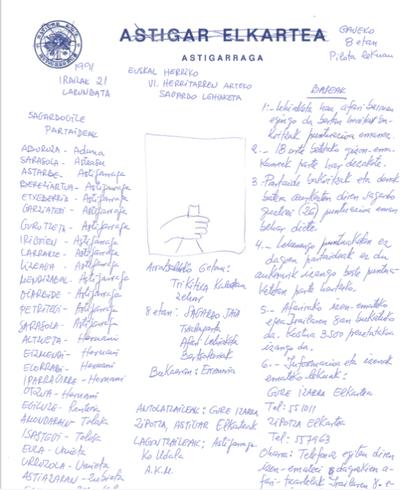 ASTIGAR ELKARTEA
ASTIGARRAGA
GAUEKO
8 etan
Pilota lekuan
1991
IRAILAK 21
LARUNBATA
EUSKAL HERRIKO
VI. HERRITARREN ARTEKO
SAGARDO LEHIAKETA
SAGARDOGILE
PARTAIDEAK
ADUROZA - Aduna
SARASOLA - Asteasu
ASTARBE - Astigarraga
BEREZIARTUA - Astigarraga
ETXEBERRIA - Astigarraga
GARTZIATEGI - Astigarraga
GURUTZETA - Astigarraga
IRIGOIEN - Astigarraga
LARRARTE - Astigarraga
LIZEAGA - Astigarraga
MENDIZABAL - Astigarraga
OIARBIDE - Astigarraga
PETRITEGI - Astigarraga
SARASOLA - Astigarraga
ALTZUETA - Hernani
EIZMENDI - Hernani
ELORRABI - Hernani
IPARRAGIRRE - Hernani
OTSUA - Hernani
EGILUZE - Renteria
AMONDARAIN - Tolosa
ISASTEGI - Tolosa
ELBA - Urnieta
URRUZOLA - Urnieta
ASTIAZARAN - Zubieta
Arratsaldeko 6etan:
TRIKITIXA
zehar
8 etan: SAGARDO JAIA
Txalaparta
Afari Lehiaketa
Bertsolariak
Bukaeran: Erromeria
ANTOLATZAILEAK: GURE IZARRA
ZIPOTZA, ASTIGAR Elkarteak
LAGUNTZAILEAK: Astigarraga
Ko Udala
A.K.M.
BASEAK
1.- Lehiaketa hau afari batean
egingo da baten
puntuazioa emanez.
2.- 18 urte beteko gizon-ema-
kumeek parte har dezakete.
3.- Partaide bakoitzak eta denek
batera dauzkaten diren sagardo
guztiei (26) puntuazioa eman
behar diete.
4.- Lehenengo
dagoen partaideak ez du
izango beste
parte hartzeko.
5.- Afarirako izen-emateko
epea Irailaren 8an bukatuko
da. Kostua 3.500 pezetakoa
izango da.
6.- Informazioa eta izenak
emateko lekuak:
GURE IZARRA ELKARTEA
Tel: 551011
ZIPOTZA ELKARTEA
Tel: 557963
Oharra: Telefonoz egiten diren
izen-emateei dagokien a-
fari-txartelak Irailaren 8.e-